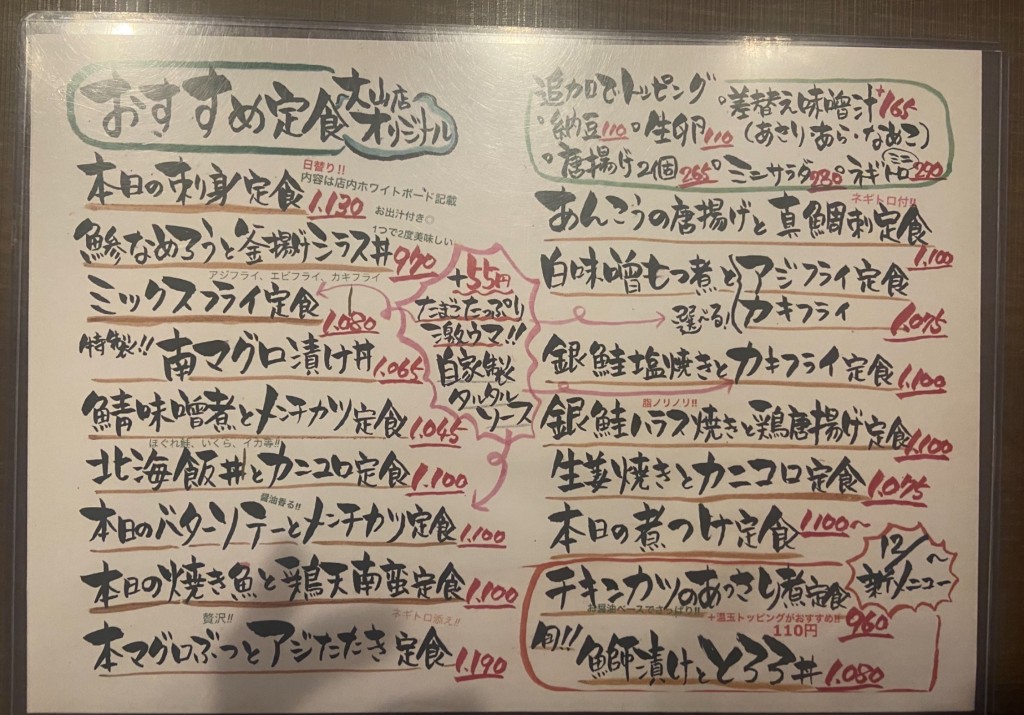 おすすめ定食
大山店
オリジナル
日替り!!
内容は店内ホワイトボード記載
本日の刺身定食 1.130
お出汁付き◎
1つで2度美味しい
鯵なめろうと釜揚げシラス丼 970
アジフライ、エビフライ、カキフライ
ミックスフライ定食 1.080
特製!! 南マグロ漬け丼 1.065
鯖味噌煮とメンチカツ定食 1.045
ほぐれ鮭、いくら、イカ等!!
北海飯丼とカニコロ定食 1.100
醤油香る!!
本日のバターソテーとメンチカツ定食 1.100
本日の焼き魚と鶏天南蛮定食 1.100
贅沢!!
ネギトロ添え!!
本マグロぶつとアジたたき定食 1.190
+55円
たまごたっぷり
激ウマ!!
自家製
タルタル
ソース
追加でトッピング
・納豆110 ・生卵110
・差替え味噌汁+165
(あさり あら・なめこ)
・唐揚げ2個265 ・ミニサラダ230 ・ネギトロ ミニ 290
ネギトロ付!!
あんこうの唐揚げと真鯛刺定食 1.100
白味噌もつ煮とアジフライ定食
選べる! カキフライ 1.075
銀鮭塩焼きとカキフライ定食 1.100
脂ノリノリ!!
銀鮭ハラス焼きと鶏唐揚げ定食 1.100
生姜焼きとカニコロ定食 1.075
本日の煮つけ定食 1100~
12/~
新メニュー
チキンカツのあっさり煮定食 960
醤油ベースでさっぱり!!
+温玉トッピングがおすすめ!!
110円
旬!! 鰤漬けととろろ丼 1.080